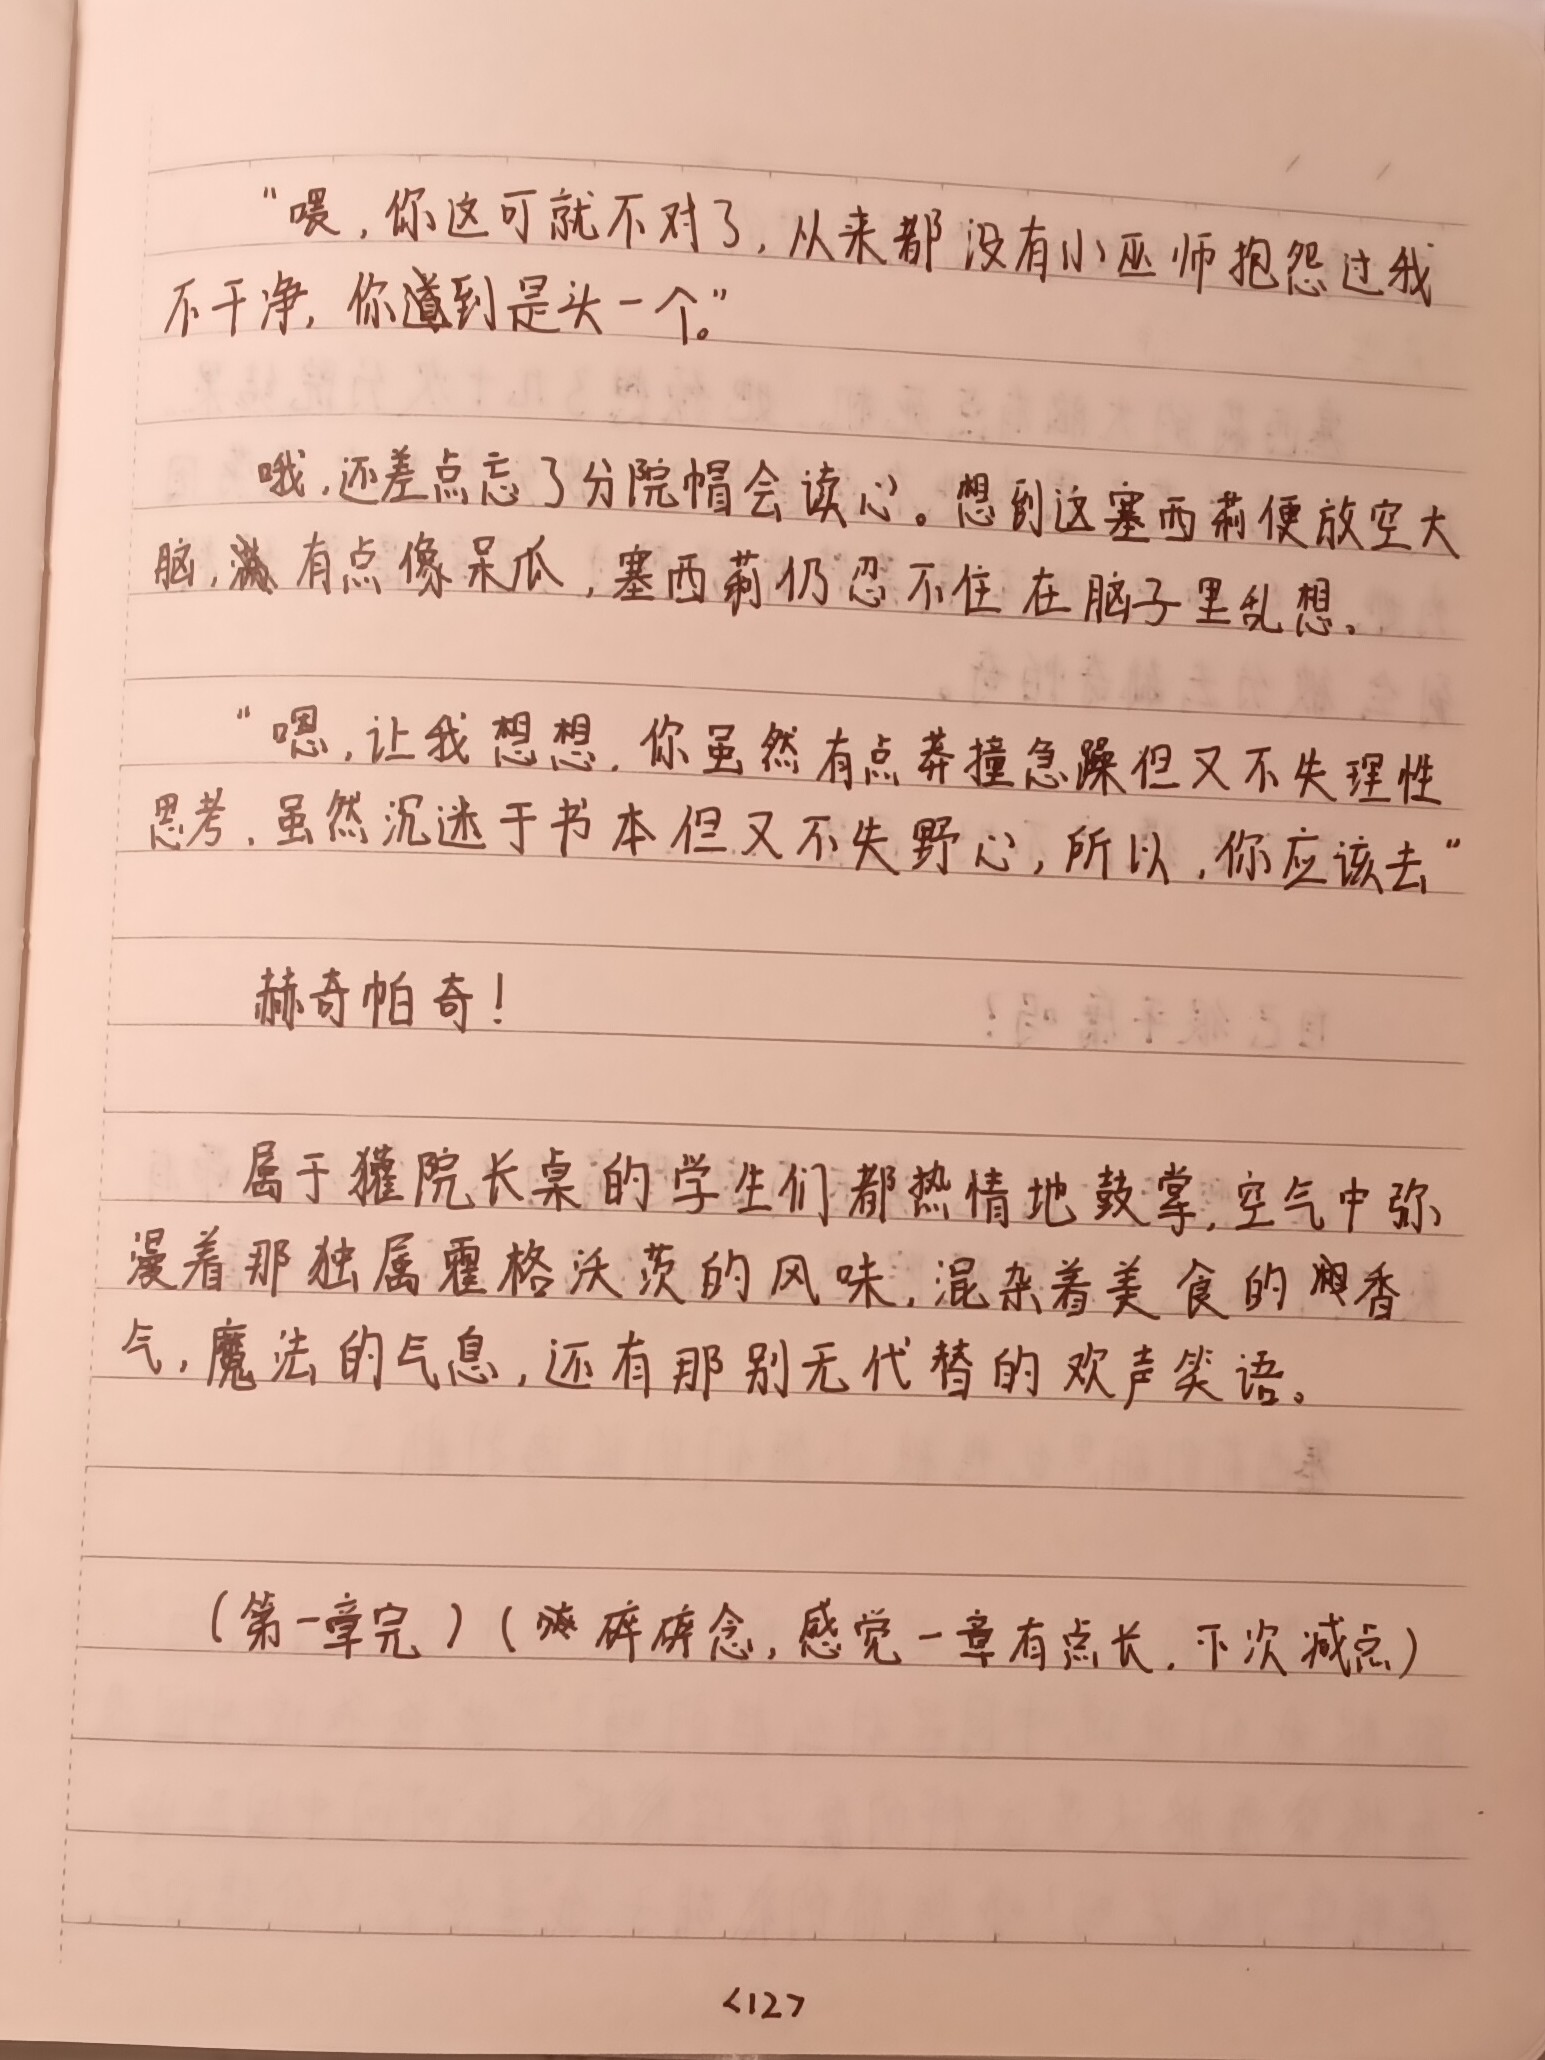 “嗳，你这可就不对了，从来都没有小巫师抱怨过我
不干净，你到是头一个。”
哦，还差点忘了分院帽会读心。想到这塞西莉便放空大
脑，有点像呆瓜，塞西莉仍忍不住在脑子里乱想。
“嗯，让我想想，你虽然有点莽撞急躁但又不失理性
思考，虽然沉迷于书本但又不失野心，所以，你应该去”
赫奇帕奇！
属于獾院长桌的学生们都热情地鼓掌，空气中弥
漫着那独属霍格沃茨的风味，混杂着美食的香
气，魔法的气息，还有那别无代替的欢声笑语。
（第一章完）（碎碎念，感觉一章有点长，下次减点）
<12>